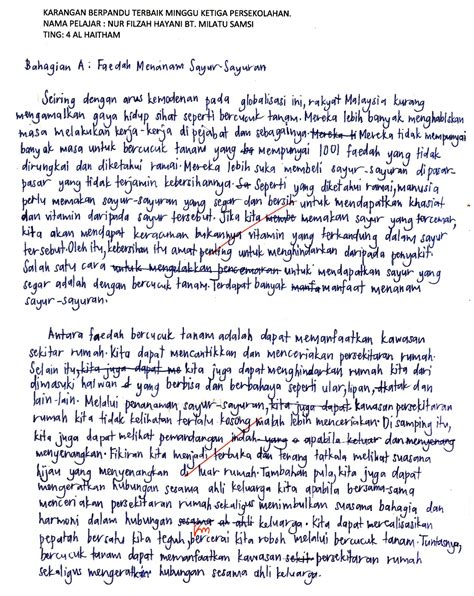 KARANGAN BERPANDU TERBAIK MINGGU KETIGA PERSEKOLAHAN.
NAMA PELAJAR : NUR FILZAH HAYANI BT. MILATU SAMSI
TING: 4 AL HAITHAM
Bahagian A : Faedah Menanam Sayur-Sayuran
Seiring dengan arus kemodenan pada globalisasi ini, rakyat Malaysia kurang
mengamalkan gaya hidup sihat seperti bercucuk tanam. Mereka lebih banyak menghabiskan
masa melakukan kerja-kerja di pejabat dan sebagainya. Mereka ti Mereka tidak mempunyai
banyak masa untuk bercucuk tanam yang mempunyai 1001 faedah yang tidak
dirungkai dan diketahui ramai. Mereka lebih suka membeli sayur-sayuran di pasar-
pasar yang tidak terjamin kebersihannya. Se Seperti yang diketahui ramai, manusia
perlu memakan sayur-sayuran yang segar dan bersih untuk mendapatkan khasiat
dan vitamin daripada sayur tersebut. Jika kita memakan sayur yang tercemar,
kita akan mendapat keracunan bukannya vitamin yang terkandung dalam sayur
tersebut. Oleh itu, kebersihan itu amat penting untuk menghindarkan daripada penyakit.
Salah satu cara untuk mengelakkan pencemaran untuk mendapatkan sayur yang
segar adalah dengan bercucuk tanam. Terdapat banyak manfa manfaat menanam
sayur-sayuran.
Antara faedah bercucuk tanam adalah dapat memanfaatkan kawasan
sekitar rumah. Kita dapat mencantikkan dan menceriakan persekitaran rumah.
Selain itu, kita juga dapat me kita juga dapat menghindarkan rumah kita dari
dimasuki haiwan yang berbisa dan berbahaya seperti ular, lipan, katak dan
lain-lain. Melalui penanaman sayur-sayuran, kita juga dapat kawasan persekitaran
rumah kita tidak kelihatan terlalu kosong malah lebih menceriakan. Di samping itu,
kita juga dapat melihat pemandangan indah yang apabila keluar dan menyenang
menyenangkan. Fikiran kita menjadi terbuka dan terang tatkala melihat suasana
hijau yang menyenangkan di luar rumah. Tambahan pula, kita juga dapat
mengeratkan hubungan sesama ahli keluarga kita apabila bersama-sama
menceriakan persekitaran rumah sekaligus menimbulkan suasana bahagia dan
harmoni dalam hubungan sesama ahli keluarga. Kita dapat merealisasikan
pepatah bersatu kita teguh, bercerai kita roboh melalui bercucuk tanam. Tuntasnya,
bercucuk tanam dapat memanfaatkan kawasan sekit persekitaran rumah
sekaligus mengeratkan hubungan sesama ahli keluarga.